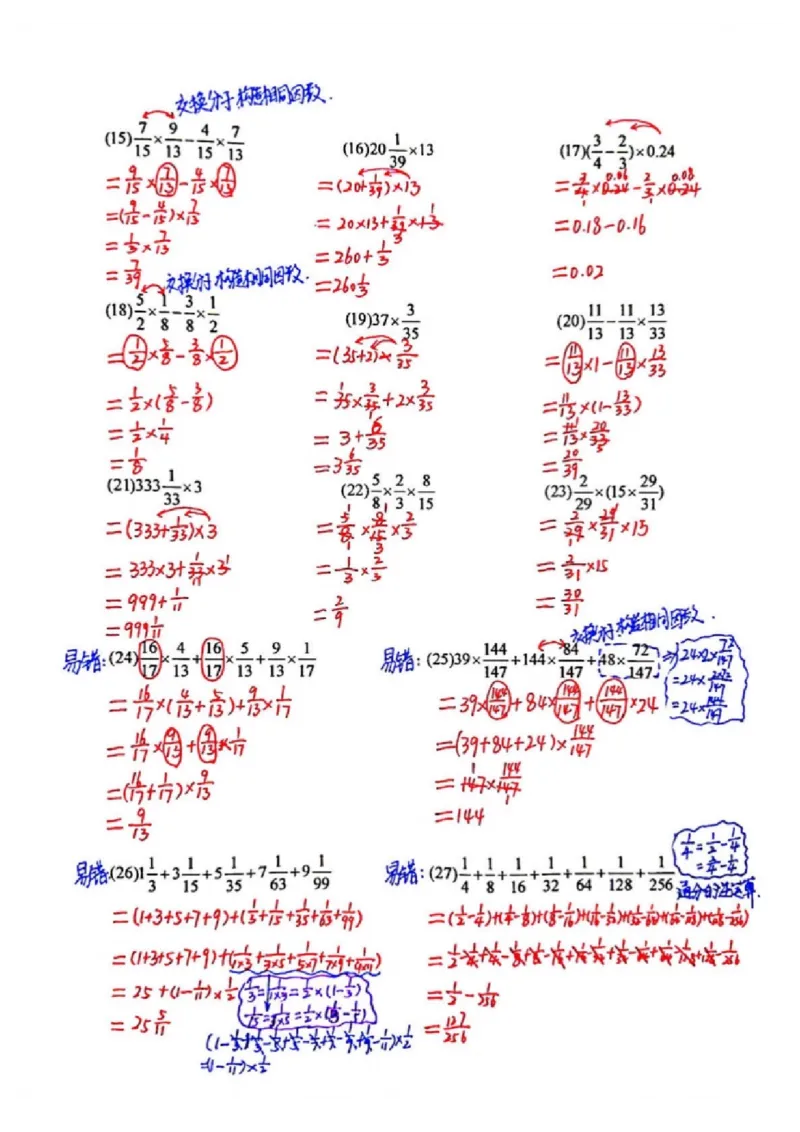 交换分子构造相同因数.
(15) 7/15 × 9/13 − 4/15 × 7/13
= 9/15 × 7/13 − 4/15 × 7/13
= (9/15 − 4/15) × 7/13
= 1/3 × 7/13
= 7/39
(16) 20 1/39 × 13
= (20 + 1/39) × 13
= 20×13 + 1/39 × 13
= 260 + 1/3
= 260 1/3
(17) (3/4 − 2/3) × 0.24
= 3/4 × 0.24 − 2/3 × 0.24
= 0.18 − 0.16
= 0.02
交换分子构造相同因数.
(18) 5/2 × 1/8 − 3/8 × 1/2
= 1/2 × 5/8 − 3/8 × 1/2
= 1/2 × (5/8 − 3/8)
= 1/2 × 1/4
= 1/8
(19) 37 × 3/35
= (35+2) × 3/35
= 35 × 3/35 + 2 × 3/35
= 3 + 6/35
= 3 6/35
(20) 11/13 − 11/13 × 13/33
= 11/13 × 1 − 11/13 × 13/33
= 11/13 × (1 − 13/33)
= 11/13 × 20/33
= 20/39
(21) 333 1/33 × 3
= (333 + 1/33) × 3
= 333×3 + 1/33 × 3
= 999 + 1/11
= 999 1/11
(22) 5/8 × 2/3 × 8/15
= 5/8 × 8/15 × 2/3
= 1/3 × 2/3
= 2/9
(23) 2/29 × (15 × 29/31)
= 2/29 × 29/31 × 15
= 2/31 × 15
= 30/31
易错: (24) 16/17 × 4/13 + 16/17 × 5/13 + 9/13 × 1/17
= 16/17 × (4/13 + 5/13) + 9/13 × 1/17
= 16/17 × 9/13 + 9/13 × 1/17
= (16/17 + 1/17) × 9/13
= 9/13
交换分子构造相同因数.
易错: (25) 39 × 144/147 + 144 × 84/147 + 48 × 72/147
⇒ 24×2×72/147
= 24 × 2×72/147
= 24 × 144/147
= 39 × 144/147 + 84 × 144/147 + 144/147 × 24
= (39+84+24) × 144/147
= 147 × 144/147
= 144
易错: (26) 1 1/3 + 3 1/15 + 5 1/35 + 7 1/63 + 9 1/99
= (1+3+5+7+9) + (1/3 + 1/15 + 1/35 + 1/63 + 1/99)
= (1+3+5+7+9) + (1/1×3 + 1/3×5 + 1/5×7 + 1/7×9 + 1/9×11)
= 25 + (1 − 1/11) × 1/2
1/3 = 1/1×3 = 1/2 × (1 − 1/3)
1/15 = 1/3×5 = 1/2 × (1/3 − 1/5)
= 25 5/11
(1 − 1/3 + 1/3 − 1/5 + 1/5 − 1/7 + 1/7 − 1/9 + 1/9 − 1/11) × 1/2
= (1 − 1/11) × 1/2
易错: (27) 1/4 + 1/8 + 1/16 + 1/32 + 1/64 + 1/128 + 1/256
1/4 = 1/2 − 1/4
= 2/4 − 1/4
= (1/2 − 1/4) + (1/4 − 1/8) + (1/8 − 1/16) + (1/16 − 1/32) + (1/32 − 1/64) + (1/64 − 1/128) + (1/128 − 1/256)
= 1/2 − 1/4 + 1/4 − 1/8 + 1/8 − 1/16 + 1/16 − 1/32 + 1/32 − 1/64 + 1/64 − 1/128 + 1/128 − 1/256
= 1/2 − 1/256
= 127/256